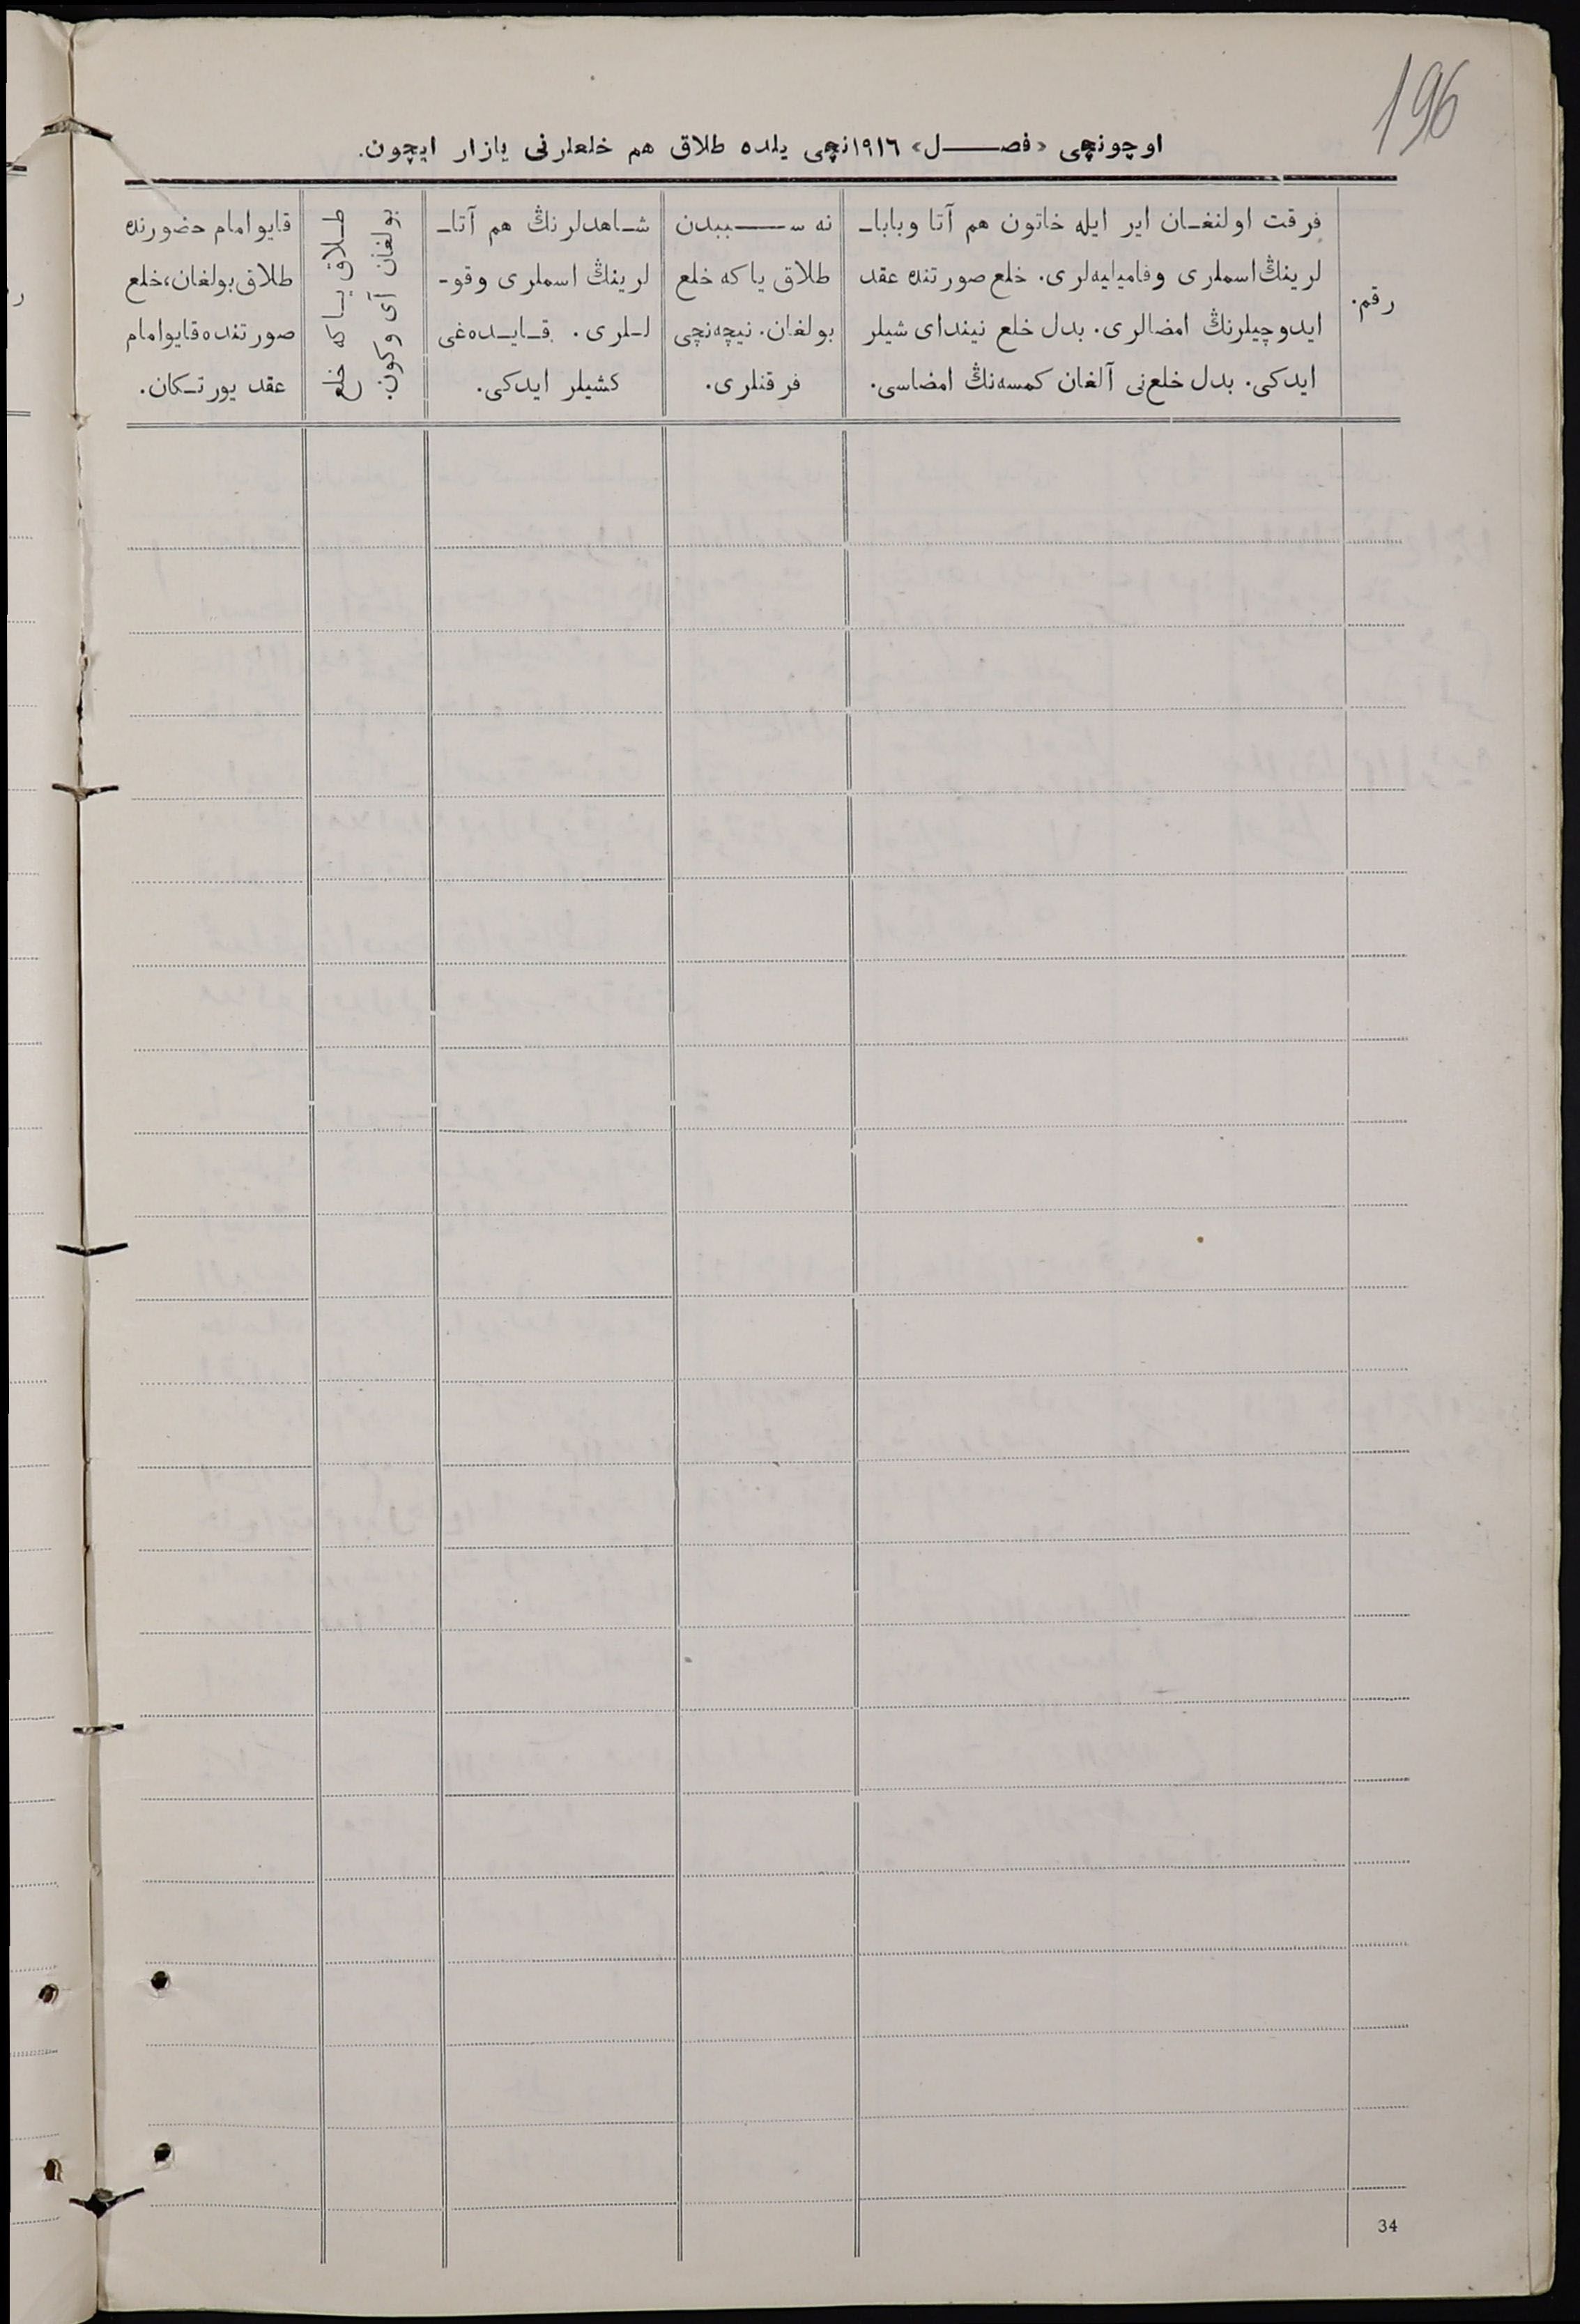 196
اوچونچی «فصل» ١٩١٦نچی یلده طلاق هم خلعلرنی یازار ایچون.
رقم.
فرقت اولنغان ایر ایله خاتون هم آتا وبابا-
لرینڭ اسملری وفامیلیه‌لری. خلع صورتنده عقد
ایدوچیلرنڭ امضالری. بدل خلع نیندای شیلر
ایدکی. بدل خلع‌نی آلغان کمسه‌نڭ امضاسی.
نه سببدن
طلاق یاکه خلع
بولغان. نیچه‌نچی
فرقتلری.
شاهدلرنڭ هم آتا-
لرینڭ اسملری وقو-
للری. قایده‌غی
کشیلر ایدکی.
طلاق یاکه خلع
بولغان آی وکون
قایو امام حضورنده
طلاق بولغان، خلع
صورتنده قایو امام
عقد یورتکان.
34